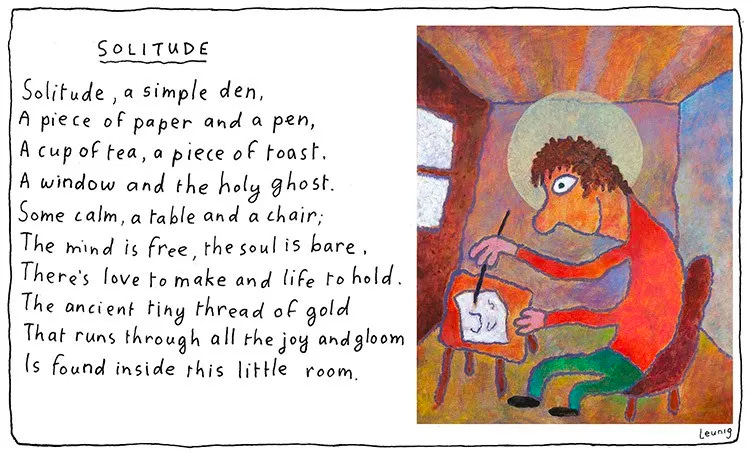 SOLITUDE
Solitude, a simple den,
A piece of paper and a pen,
A cup of tea, a piece of toast.
A window and the holy ghost.
Some calm, a table and a chair;
The mind is free, the soul is bare.
There's love to make and life to hold.
The ancient tiny thread of gold
That runs through all the joy and gloom
Is found inside this little room.
Leunig